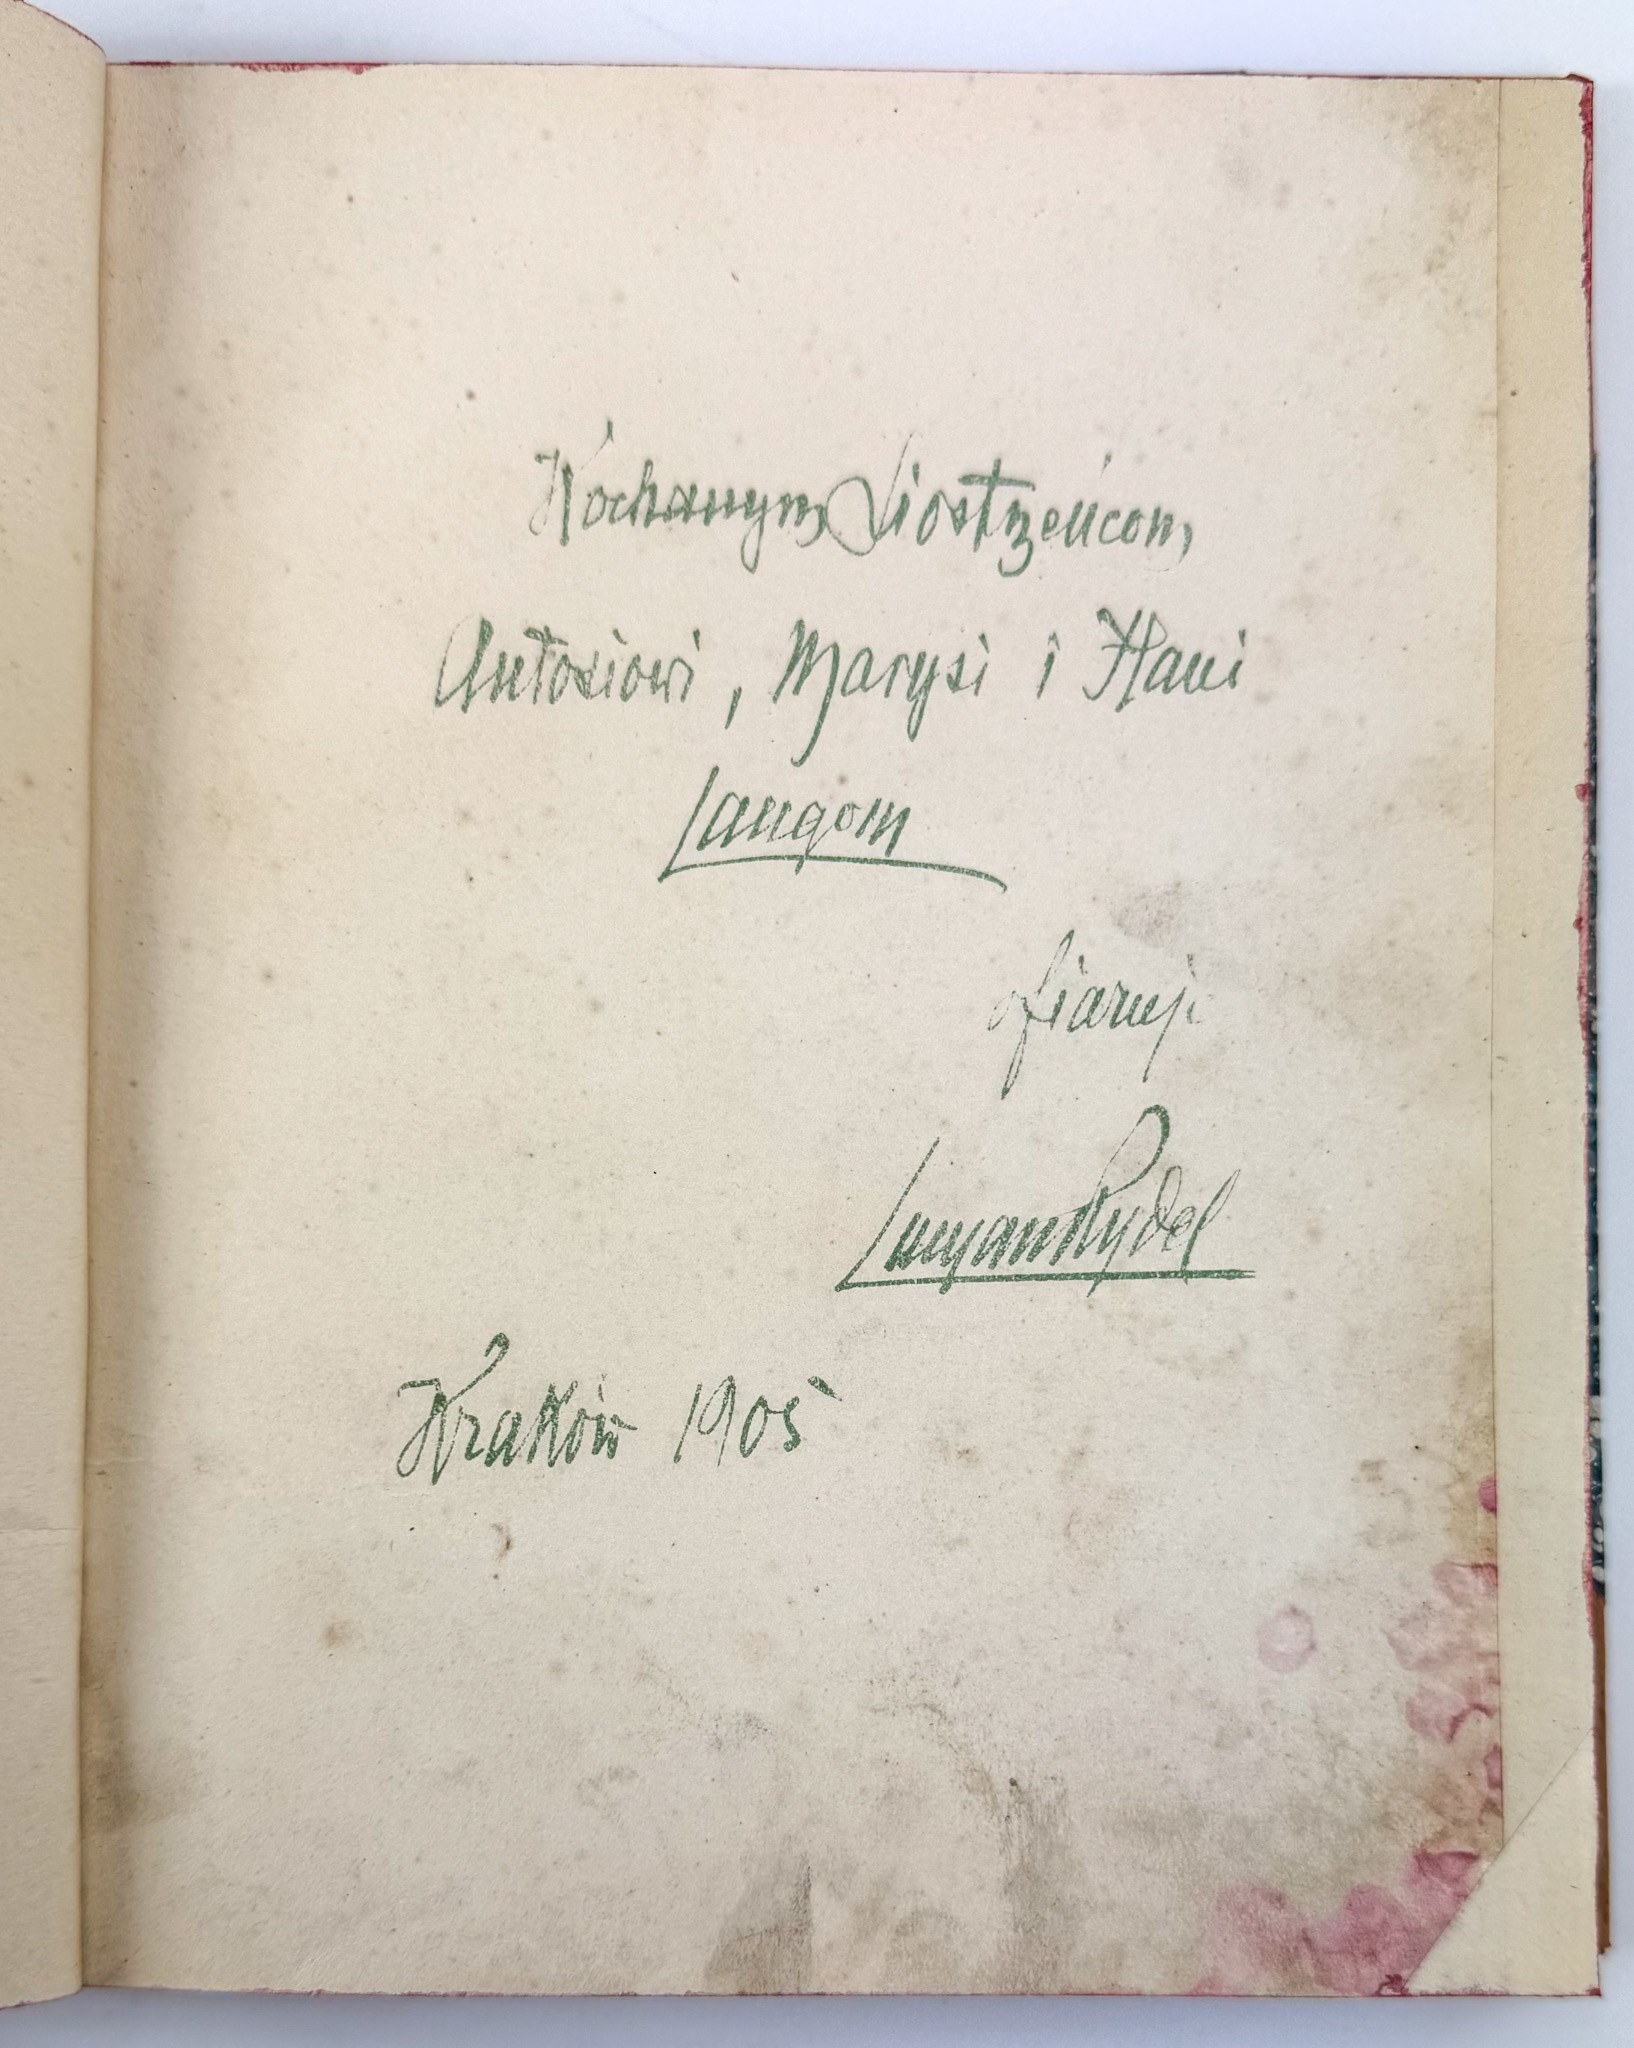 Kochanym Siostrzeńcom,
Antosiowi, Marysi i Hani
Langom
ofiaruje
Lucyan Rydel
Kraków 1905